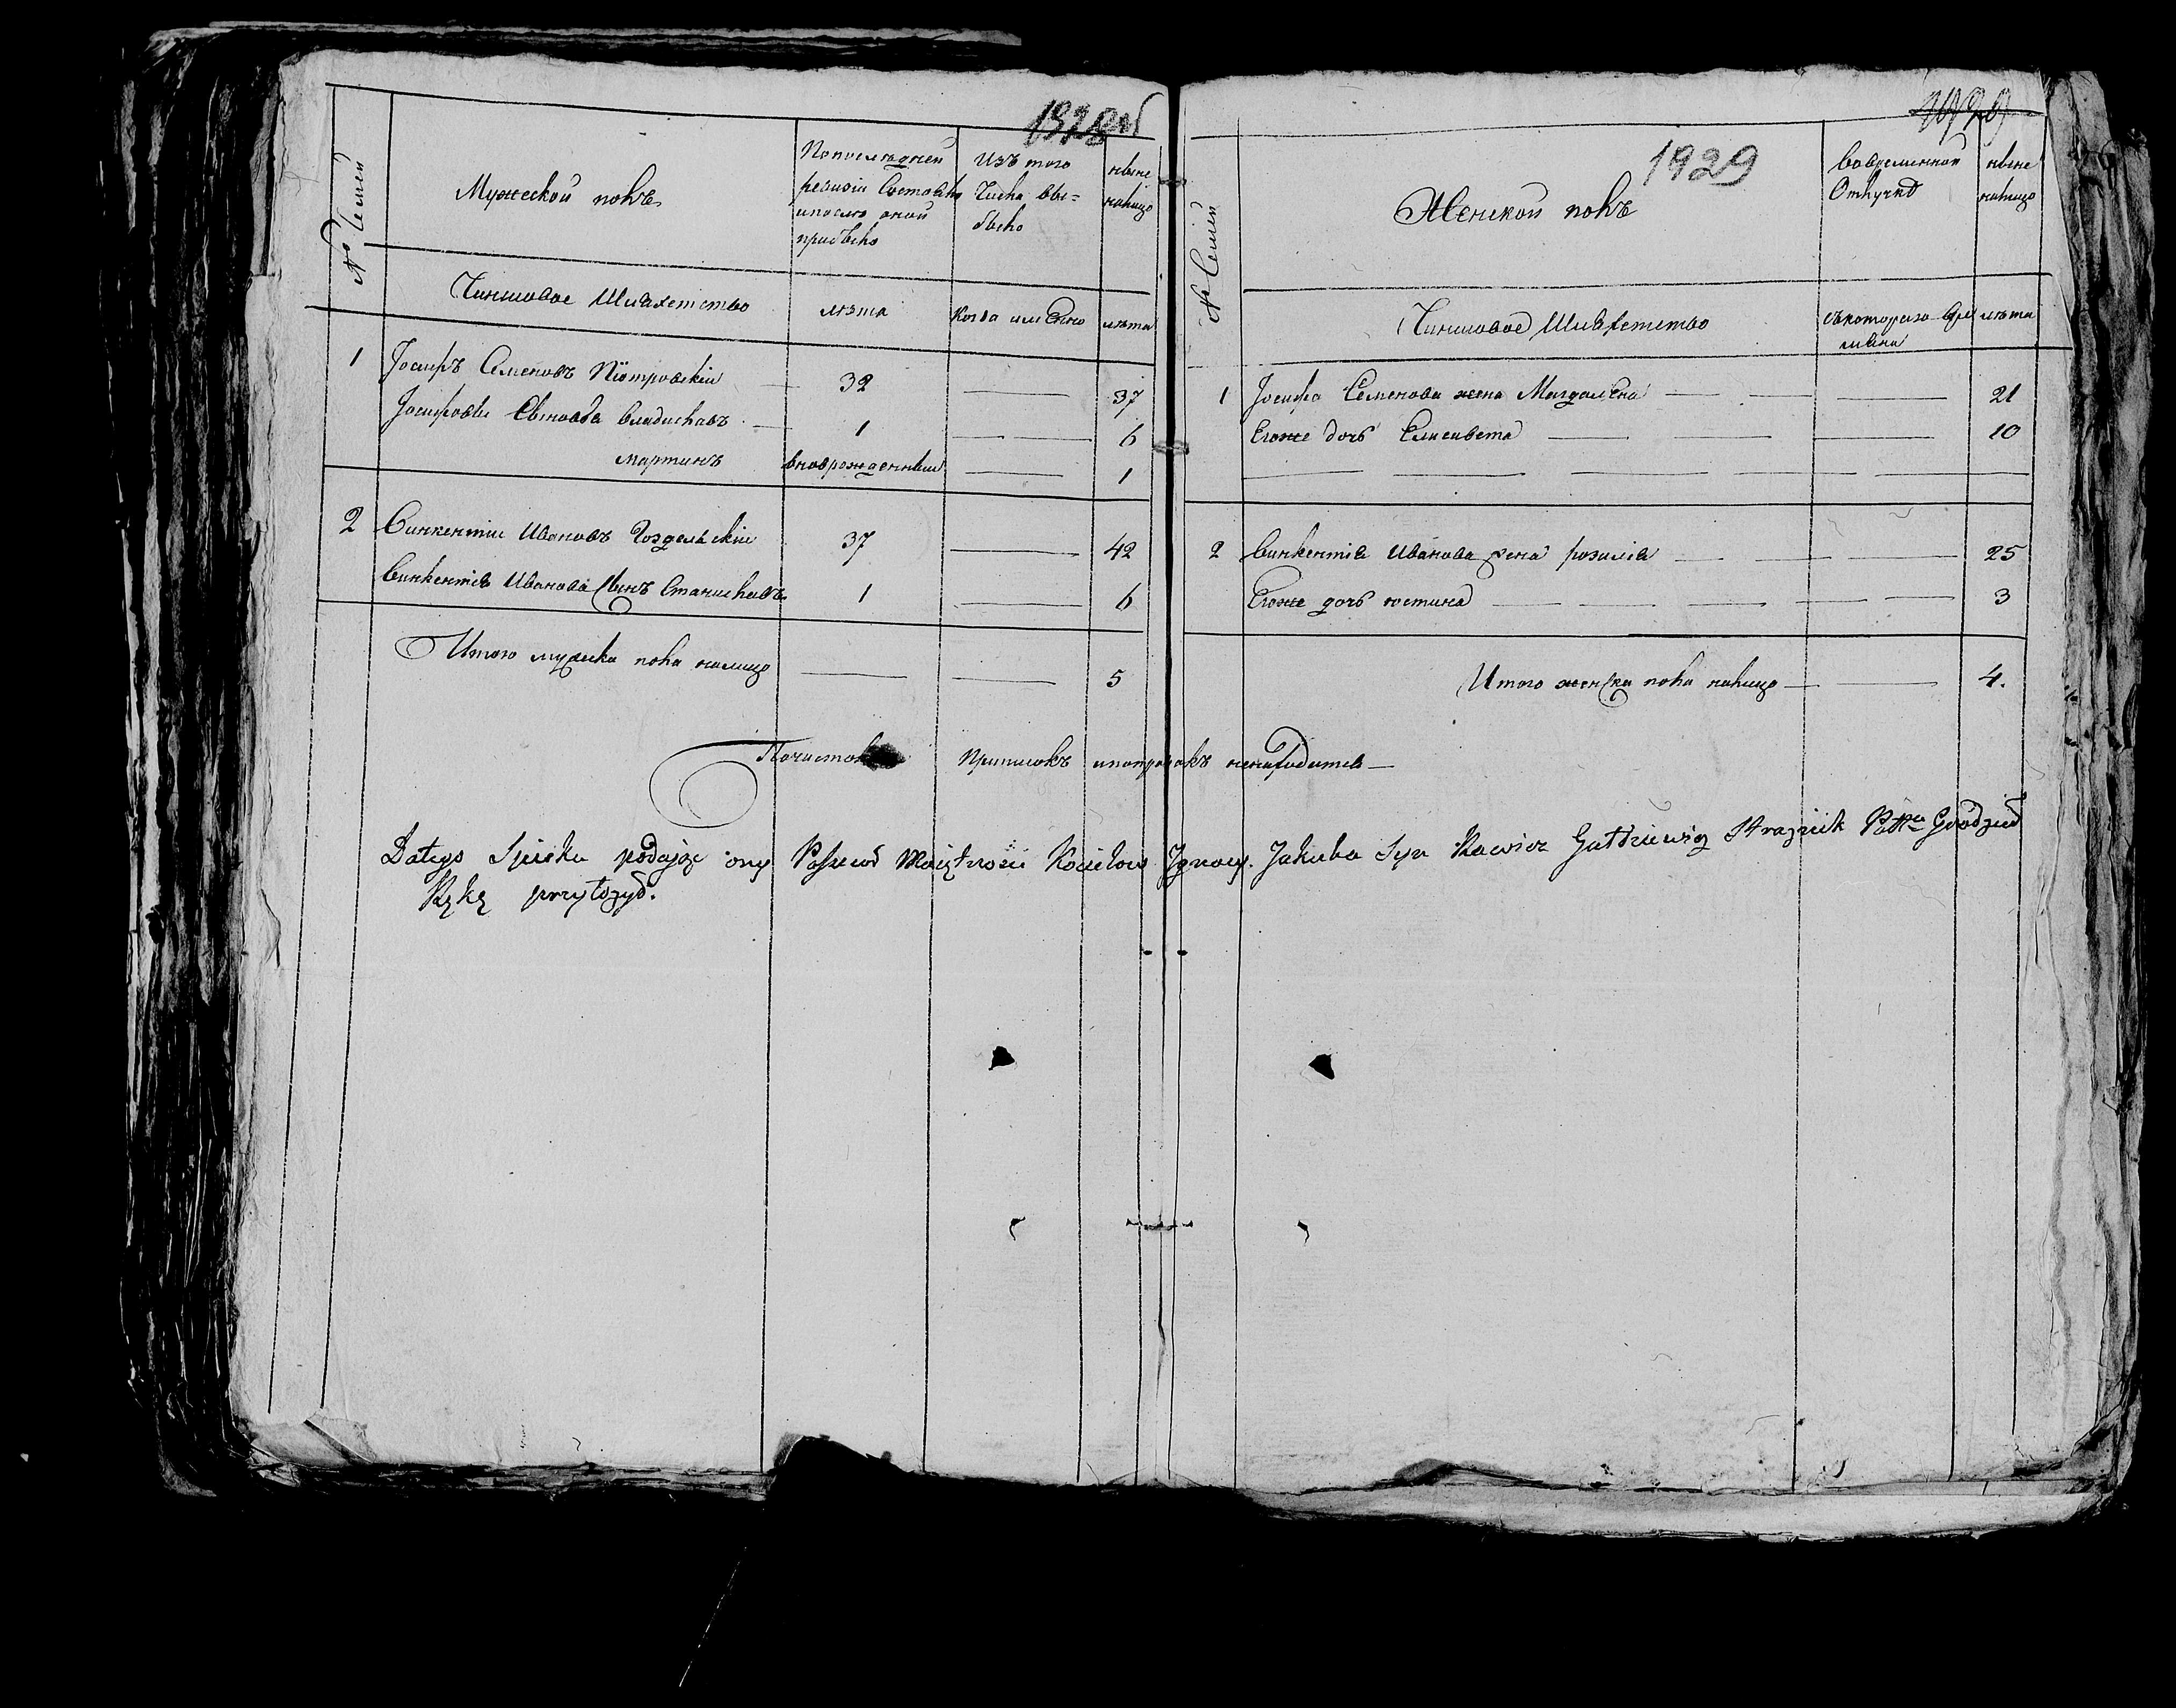 1928 об
№ Семей
Мужеской полъ
По последней
ревизiи состояло
и после оной
прибыло
Изъ того
числа вы=
было
ныне
налицо
Чиншовое Шляхетство
лета
Когда именно
лета
1 Јосифъ Семеновъ Пiотровскiй — 32 — 37
Јосифовы Сыновья Владиславъ — 1 — 6
Мартинъ вноврожденный — 1
2 Винкентiй Ивановъ 37 — 42
Винкентiя Иванова Сынъ Станиславъ 1 — 6
Итого мужска пола налицо — — 5
1929
№ Семей
Женской полъ
Во временной
Отлучке
ныне
налицо
Чиншовое Шляхетство
съ котораго вре
мени
лета
1 Јосифа Семенова жена Магдалена — — 21
Егоже дочь Елисавета — — 10
2 Винкентiя Иванова жена Розалiя — — 25
Егоже дочь Юстина — — 3
Итого женска пола налицо — — 4.
приписокъ и поправокъ ненаходится —
Do tego Spisku podając ony Possessor Maiętności Ignacy Jakuba Syn Rawicz Strażnik Pottu Grodzień
Rękę przyłożył.